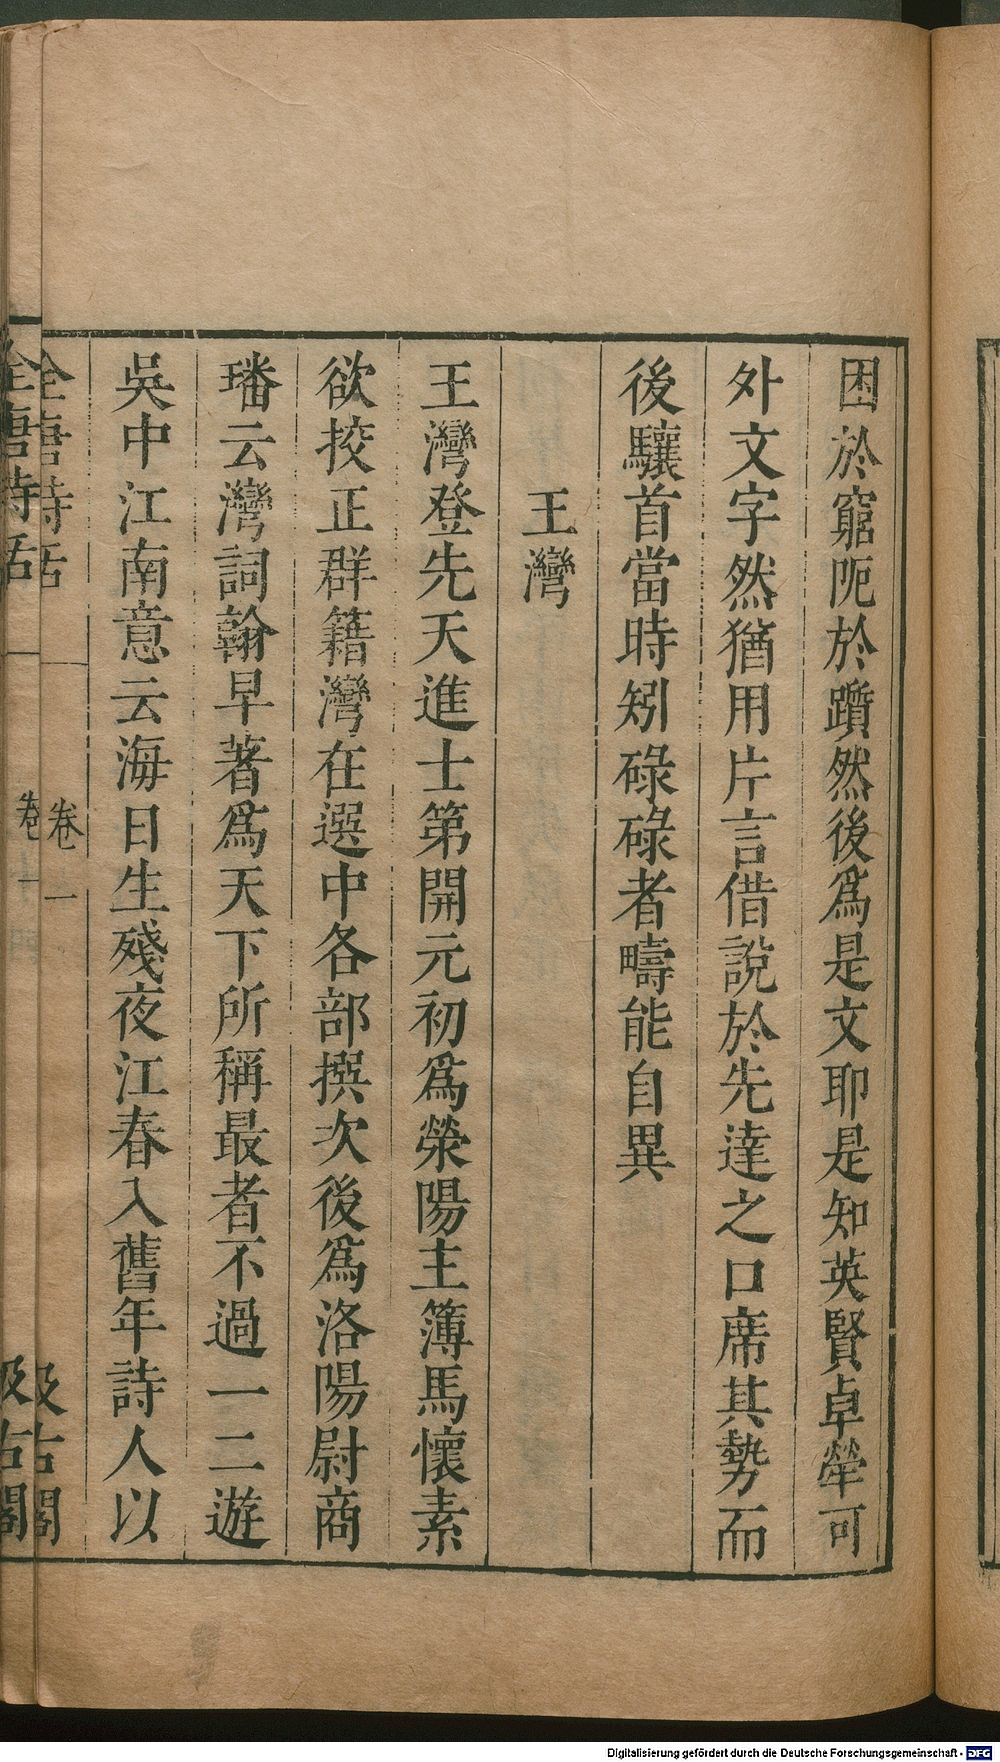 困於窮阨於躓然後爲是文耶是知英賢卓犖可
外文字然猶用片言借說於先達之口席其勢而
後驤首當時矧碌碌者疇能自異
王灣
王灣登先天進士第開元初爲滎陽主簿馬懷素
欲挍正群籍灣在選中各部撰次後爲洛陽尉商
璠云灣詞翰早著爲天下所稱最者不過一二遊
吳中江南意云海日生殘夜江春入舊年詩人以
全唐詩話 卷一 汲古閣
全唐詩話 卷 汲古閣
Digitalisierung gefördert durch die Deutsche Forschungsgemeinschaft - DFG